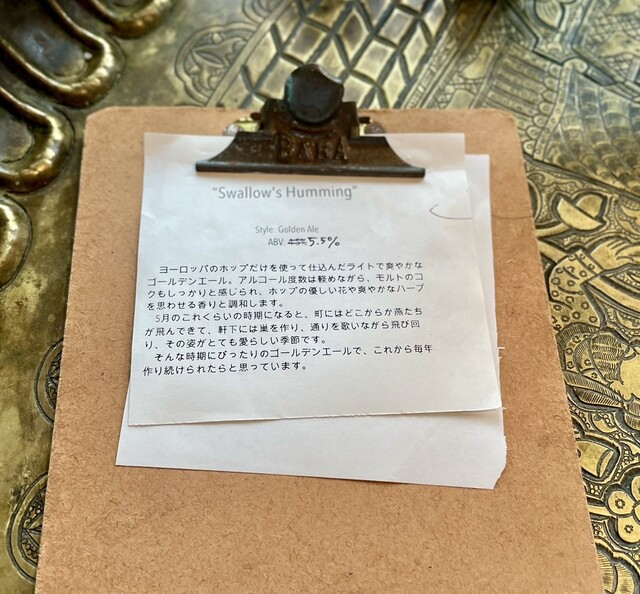 BABA
"Swallow's Humming"
Style: Golden Ale
ABV: 5.5%
ヨーロッパのホップだけを使って仕込んだライトで爽やかな
ゴールデンエール。アルコール度数は軽めながら、モルトのコ
クもしっかりと感じられ、ホップの優しい花や爽やかなハーブ
を思わせる香りと調和します。
5月のこれくらいの時期になると、町にはどこからか燕たち
が飛んできて、軒下には巣を作り、通りを歌いながら飛び回
り、その姿がとても愛らしい季節です。
そんな時期にぴったりのゴールデンエールで、これから毎年
作り続けられたらと思っています。